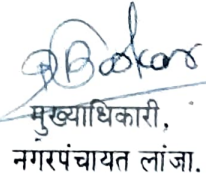 मुख्याधिकारी,
नगरपंचायत लांजा.